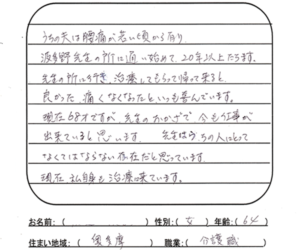 うちの夫は腰痛が若い頃から有り
波多野先生の所に通い始めて、20年以上たちます。
先生の所に行き、治療してもらって帰って来ると
良かった、痛くなくなったといつも喜んでいます。
現在68才ですが、先生のおかげで今も仕事が
出来ていると思います。先生はうちの人にとって
なくてはならない存在だと思っています。
現在私自身も治療に来ています。
お名前：（　　　）性別：（女）年齢：（64）
住まい地域：（　　　）職業：（介護職）